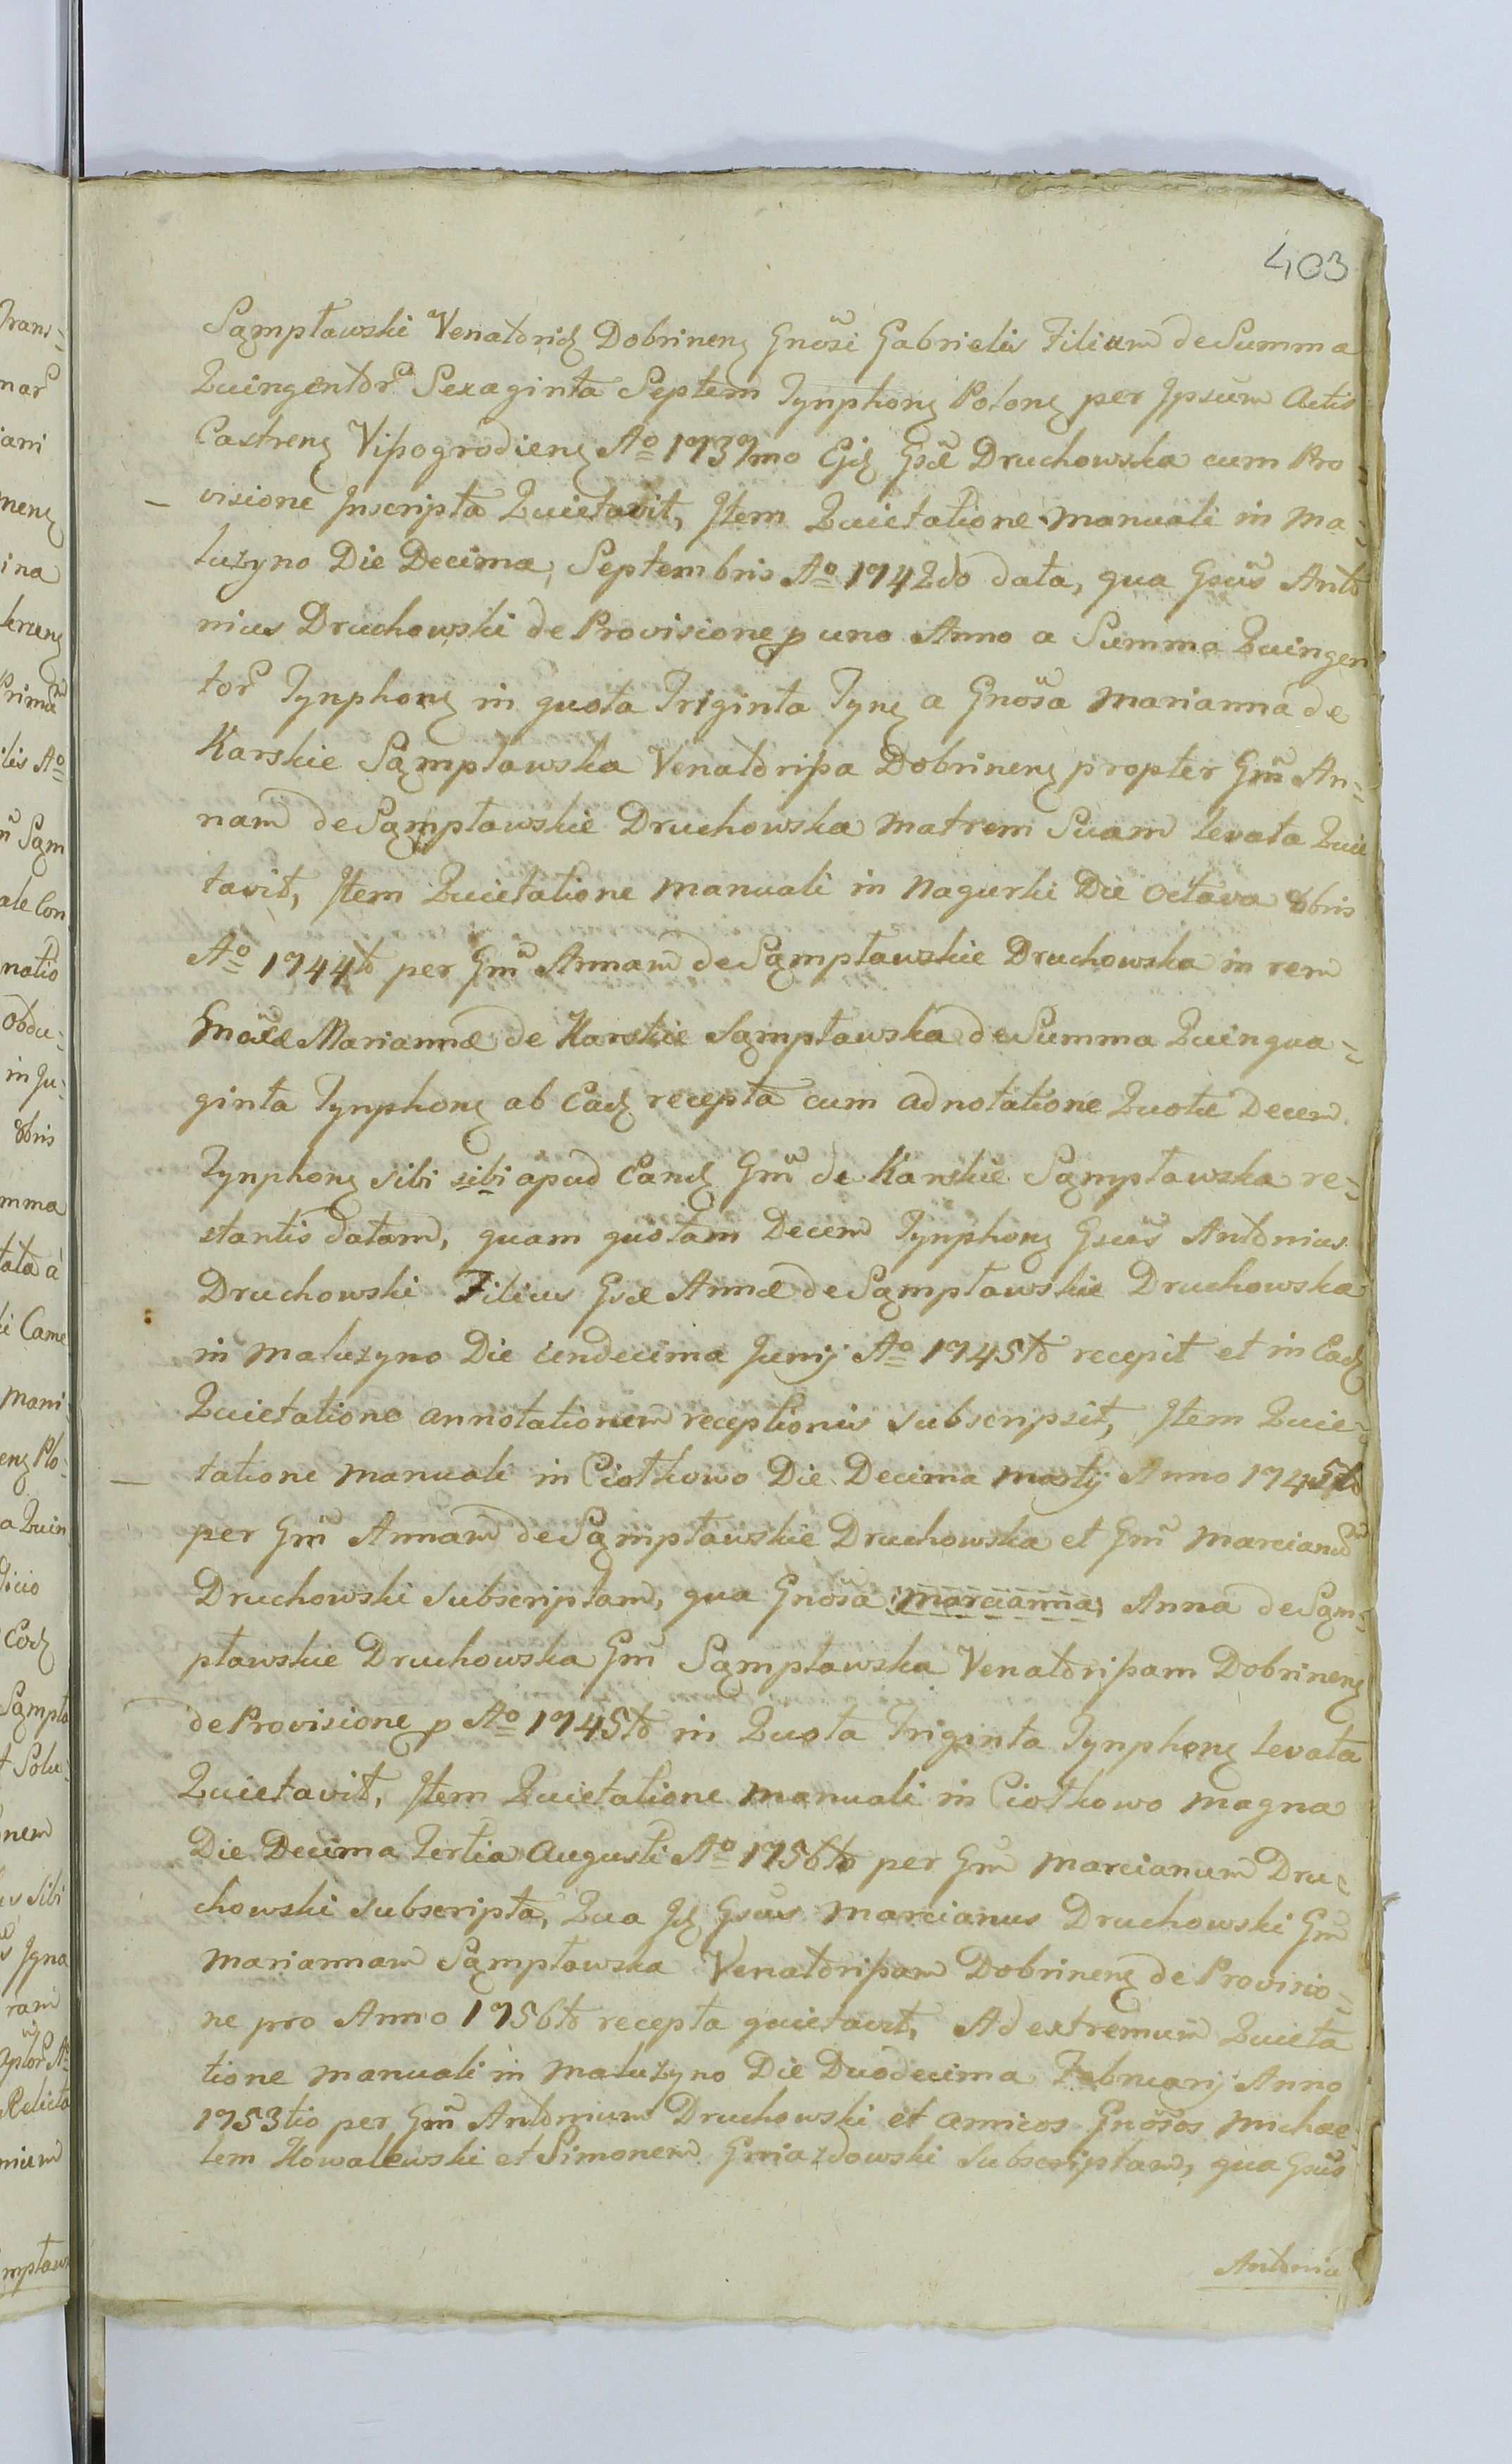 403
Sąmpławski Venatoridę Dobrinenę Gnõsi Gabrielis Filium de Summa
Quingentor̃ Sexaginta Septem Tynphonę Polonę per Ipsum Actis
Castrenę Vißogrodienę Aº 1737mo Ejdę Gsæ Druchowska cum Pro=
visione Inscripta Quietavit, Item Quietatione manuali in Ma=
luzyno Die Decima, Septembris Aº 1742do data, qua Gsũs Anto
nius Druchowski de Provisione p uno Anno a Summa Quingen
tor̃ Tynphonę in quota Triginta Tynę a Gnõsa Marianna de
Karskie Sąmpławska Venatorißa Dobrinenę propter Gm̃ An=
nam de Sąmpławskie Druchowska Matrem Suam levata Quie
tavit, Item Quietatione Manuali in Nagurki Die Octava 8bris
Aº 1744to per Gm̃ Annam de Sąmpławskie Druchowska in rem
Gnõsæ Mariannæ de Karskie Sąmpławska de Summa Quinqua=
ginta Tynphonę ab Eadę recepta cum adnotatione Quotæ Decem
Tynphonę sibi sibi apud Eandę Gm̃ de Karskie Sąmpławska re=
stantis datam, quam quotam Decem Tynphonę Gsũs Antonius
Druchowski Filius Gsæ Annæ de Sąmpławskie Druchowska
in Maluzyno Die undecima Junij Aº 1745to recepit et in Eadę
Quietatione annotationem receptionis subscripsit, Item Quie=
tatione Manuali in Ciotkowo Die Decima Martij Anno 1745to
per Gm̃ Annam de Sąmpławskie Druchowska et Gm̃ Marcianũm
Druchowski subscriptam, qua Gnõsa Marcianna, Anna de Sąm=
pławskie Druchowska Gm̃ Sąmpławska Venatorißam Dobrinenę
de Provisione p Aº 1745to in Quota Triginta Tynphonę levata
Quietavit, Item Quietatione Manuali in Ciotkowo Magna
Die Decima Tertia Augusti Aº 1756to per Gm̃ Marcianum Dru=
chowski subscripta, Qua Idę Gsus Marcianus Druchowski Gm̃
Mariannam Sąmpławska Venatorißam Dobrinenę de Provisio=
ne pro Anno 1756to recepta quietavit, Ad extremum Quieta
tione manuali in Maluzyno Die Duodecima Februarij Anno
1753tio per Gm̃ Antonium Druchowski et amicos Gnõsos Michae
lem Kowalewski et Simonem Gniazdowski Subscriptam, qua Gsũs
Antoniu